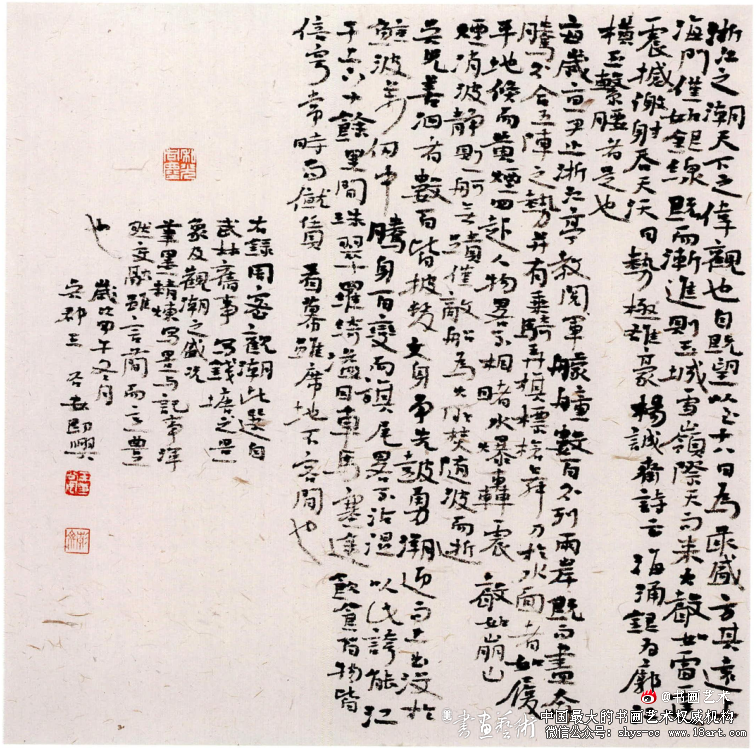 浙江之潮天下之偉觀也自既望以至十八日為最盛方其遠出
海門僅如銀線既而漸進則玉城雪嶺際天而来大聲如雷霆
震撼激射吞天沃日勢極雄豪楊誠齋詩云海涌銀為郭江
横玉繫腰者是也
每歲京尹出浙江亭教閱軍艨艟數百分列兩岸既而盡奔
騰分合五陣之勢并有乘騎弄旗標槍舞刀於水面者如履
平地倏而黄煙四起人物畧不相睹水暴轟震聲如崩山
煙消波靜則一舸無迹僅敵船為火所焚随波而逝
吴兒善泅者數百皆披髮文身爭先鼓勇溯迎而上出没於
鯨波萬仞中騰身百變而旗尾畧不沾濕以此誇能江
干上下十餘里間珠翠羅綺溢目車馬塞途飲食百物皆
倍穹常時而僦賃看幕雖席地不容間也
右録周密觀潮此選自
武林舊事写錢塘之景
象及觀潮之盛况
筆墨精煉写景与記事渾
然交融雖言簡而意豊
也
歲次甲午冬月
吴郡王
@书画艺术
書畫藝術
中国最大的书画艺术权威机构
微信公众号：shys-cc www.18art.com